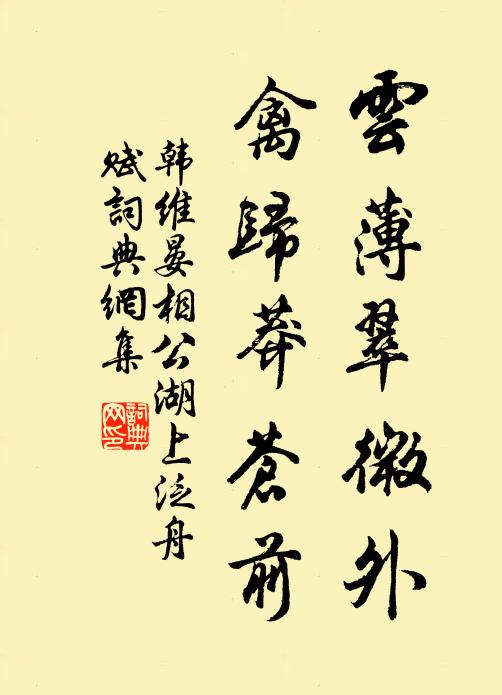 雲薄翠微外
禽歸莽蒼前
韩維晏相公湖上泛舟
賦詞典網集
詞典
网印